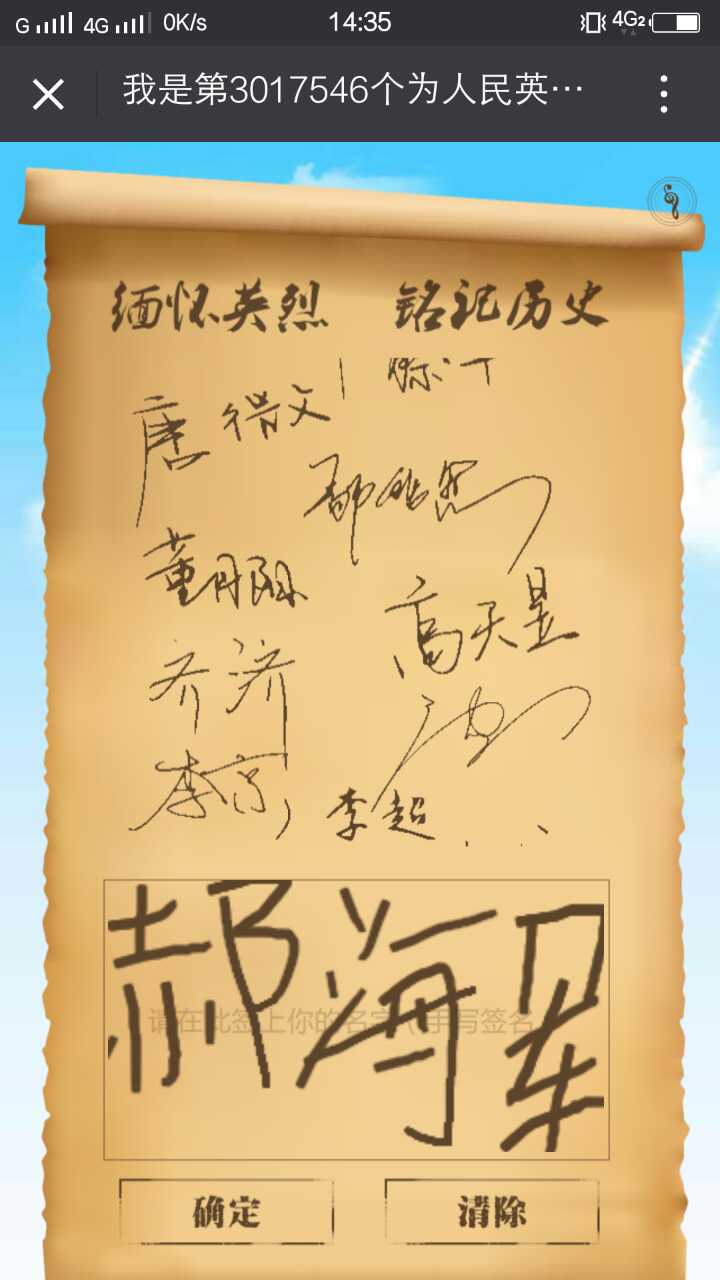 G 4G 0K/s 14:35 4G2
我是第3017546个为人民英…
缅怀英烈 铭记历史
唐微文
董月阳
高天星
齐济
李京
李超
郝海军
请在此签上你的名字(手写签名
确定 清除